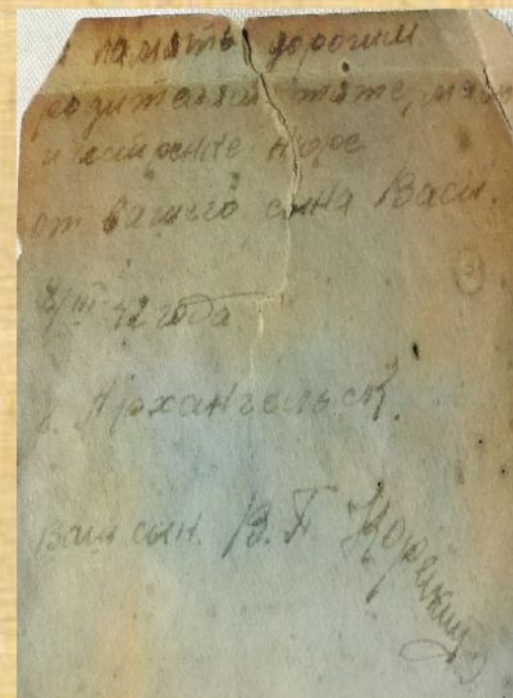 память дорогим
родителям тяте, маме
и сестренке Нюре
от вашего сына Васи.
8/III 42 года
г. Архангельск.
ваш сын. В. П.